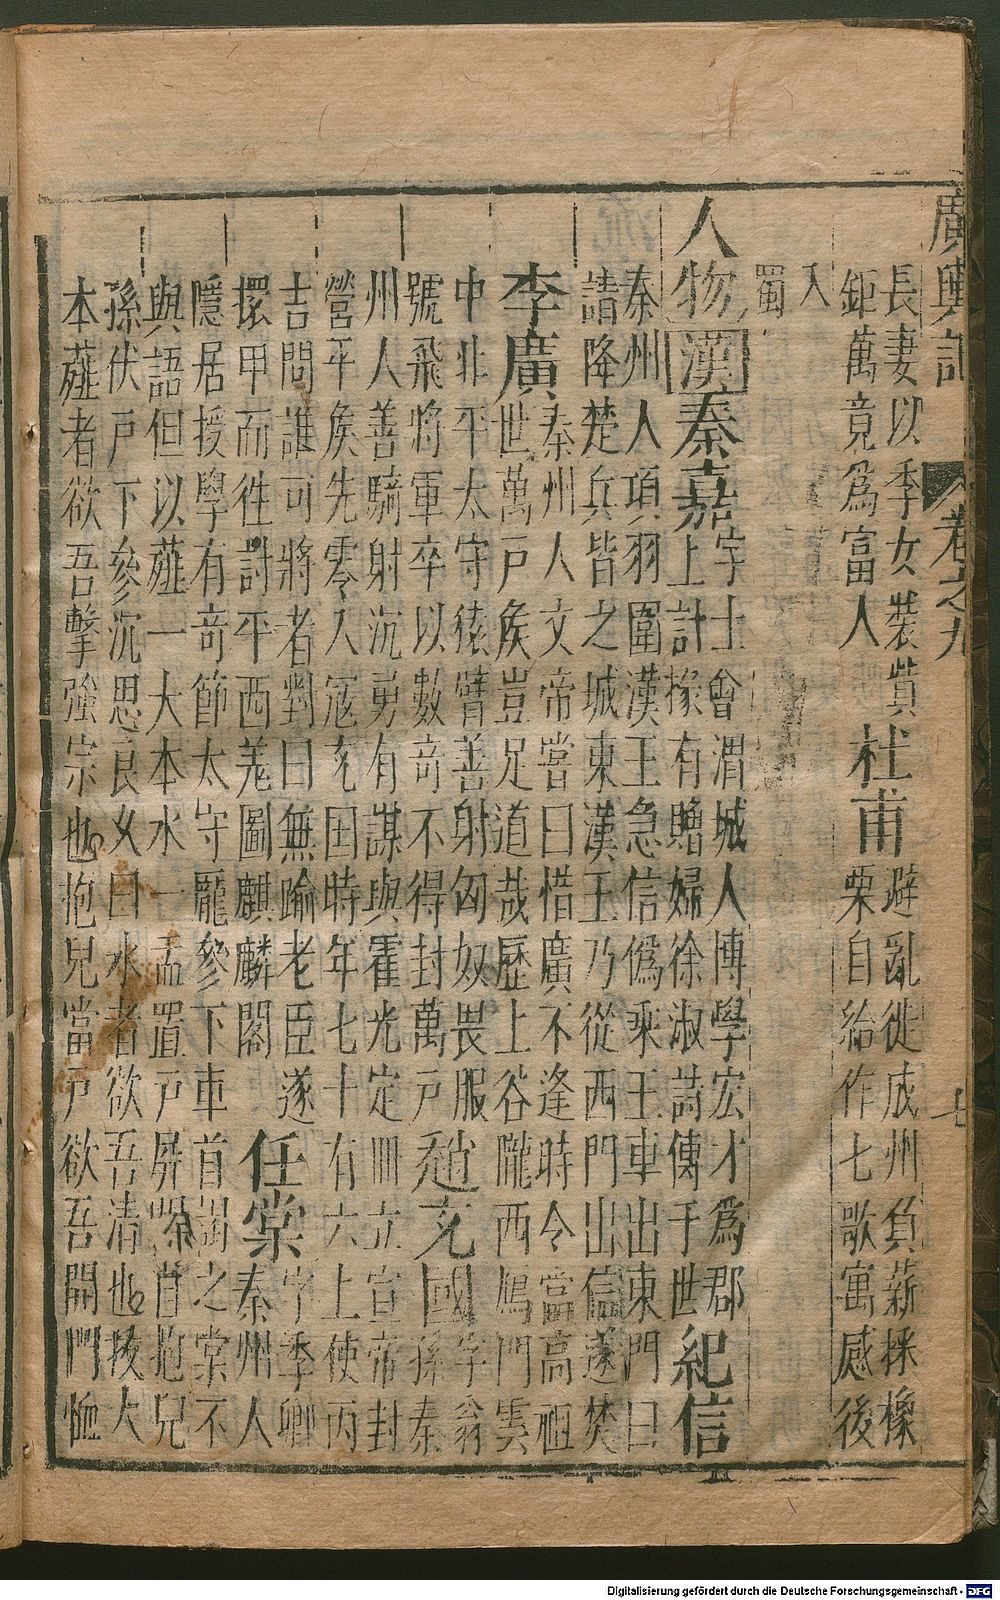 廣輿記 卷之九 七
長妻以季女裝貲
鉅萬竟爲富人
杜甫
避亂徙成州負薪採橡
栗自給作七歌寓感後
入
蜀
人物 漢 秦嘉
字士會渭城人博學宏才爲郡
上計掾有贈婦徐淑詩傳于世
紀信
秦州人項羽圍漢王急信僞乘王車出東門曰
請降楚兵皆之城東漢王乃從西門出信遂焚
李廣
秦州人文帝嘗曰惜廣不逢時令當高祖
世萬戶侯豈足道哉歷上谷隴西鴈門雲
中北平太守猿臂善射匈奴畏服
號飛將軍卒以數奇不得封萬戶
趙充國
字翁
孫秦
州人善騎射沉勇有謀與霍光定冊立宣帝封
營平侯先零入寇充囯時年七十有六上使丙
吉問誰可將者對曰無踰老臣遂
擐甲而往討平西羌圖麒麟閣
任棠
字季卿
秦州人
隱居授學有奇節太守龐參下車首謁之棠不
與語但以薤一大本水一盂置戶屏抱兒
孫伏戶下參沉思良久曰水者欲吾清也拔大
本薤者欲吾擊強宗也抱兒當戶欲吾開門恤
Digitalisierung gefördert durch die Deutsche Forschungsgemeinschaft - DFG